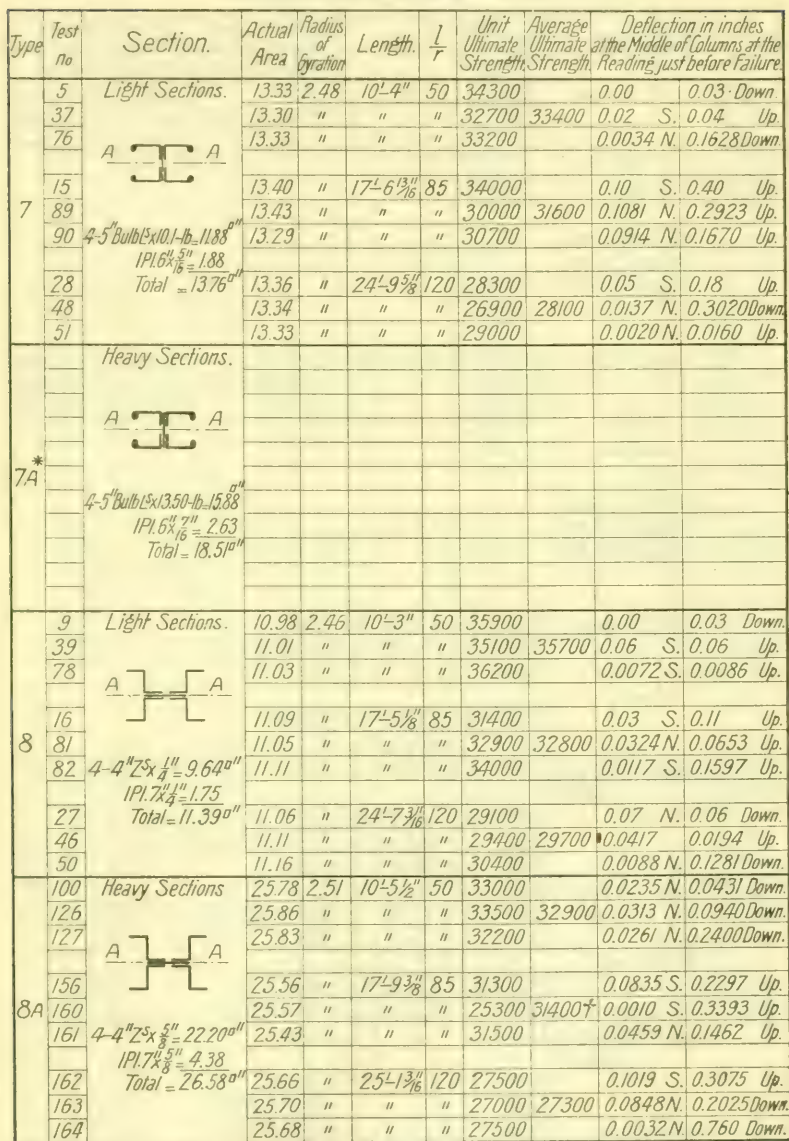 Type Test no Section. Actual Area Radius of Gyration Length. l/r Unit Ultimate Strength. Average Ultimate Strength. Deflection in inches at the Middle of Columns at the Reading just before Failure.
7
Light Sections.
A A
4-5" Bulb Ls x 10.1-lb = 11.88□"
1Pl. 6" x 5/16" = 1.88
Total = 13.76□"
5 13.33 2.48 10'-4" 50 34300 0.00 0.03 Down.
37 13.30 " " " 32700 33400 0.02 S. 0.04 Up.
76 13.33 " " " 33200 0.0034 N. 0.1628 Down.
15 13.40 " 17'-6 13/16" 85 34000 0.10 S. 0.40 Up.
89 13.43 " " " 30000 31600 0.1081 N. 0.2923 Up.
90 13.29 " " " 30700 0.0914 N. 0.1670 Up.
28 13.36 " 24'-9 5/8" 120 28300 0.05 S. 0.18 Up.
48 13.34 " " " 26900 28100 0.0137 N. 0.3020 Down.
51 13.33 " " " 29000 0.0020 N. 0.0160 Up.
7A*
Heavy Sections.
A A
4-5" Bulb Ls x 13.50-lb = 15.88□"
1Pl. 6" x 7/16" = 2.63
Total = 18.51□"
8
Light Sections.
A A
4-4" Zs x 1/4" = 9.64□"
1Pl. 7" x 1/4" = 1.75
Total = 11.39□"
9 10.98 2.46 10'-3" 50 35900 0.00 0.03 Down.
39 11.01 " " " 35100 35700 0.06 S. 0.06 Up.
78 11.03 " " " 36200 0.0072 S. 0.0086 Up.
16 11.09 " 17'-5 1/8" 85 31400 0.03 S. 0.11 Up.
81 11.05 " " " 32900 32800 0.0324 N. 0.0653 Up.
82 11.11 " " " 34000 0.0117 S. 0.1597 Up.
27 11.06 " 24'-7 3/16" 120 29100 0.07 N. 0.06 Down.
46 11.11 " " " 29400 29700 0.0417 0.0194 Up.
50 11.16 " " " 30400 0.0088 N. 0.1281 Down.
8A
Heavy Sections
A A
4-4" Zs x 5/8" = 22.20□"
1Pl. 7" x 5/8" = 4.38
Total = 26.58□"
100 25.78 2.51 10'-5 1/2" 50 33000 0.0235 N. 0.0431 Down.
126 25.86 " " " 33500 32900 0.0313 N. 0.0940 Down.
127 25.83 " " " 32200 0.0261 N. 0.2400 Down.
156 25.56 " 17'-9 3/8" 85 31300 0.0835 S. 0.2297 Up.
160 25.57 " " " 25300 31400† 0.0010 S. 0.3393 Up.
161 25.43 " " " 31500 0.0459 N. 0.1462 Up.
162 25.66 " 25'-1 3/16" 120 27500 0.1019 S. 0.3075 Up.
163 25.70 " " " 27000 27300 0.0848 N. 0.2025 Down.
164 25.68 " " " 27500 0.0032 N. 0.760 Down.